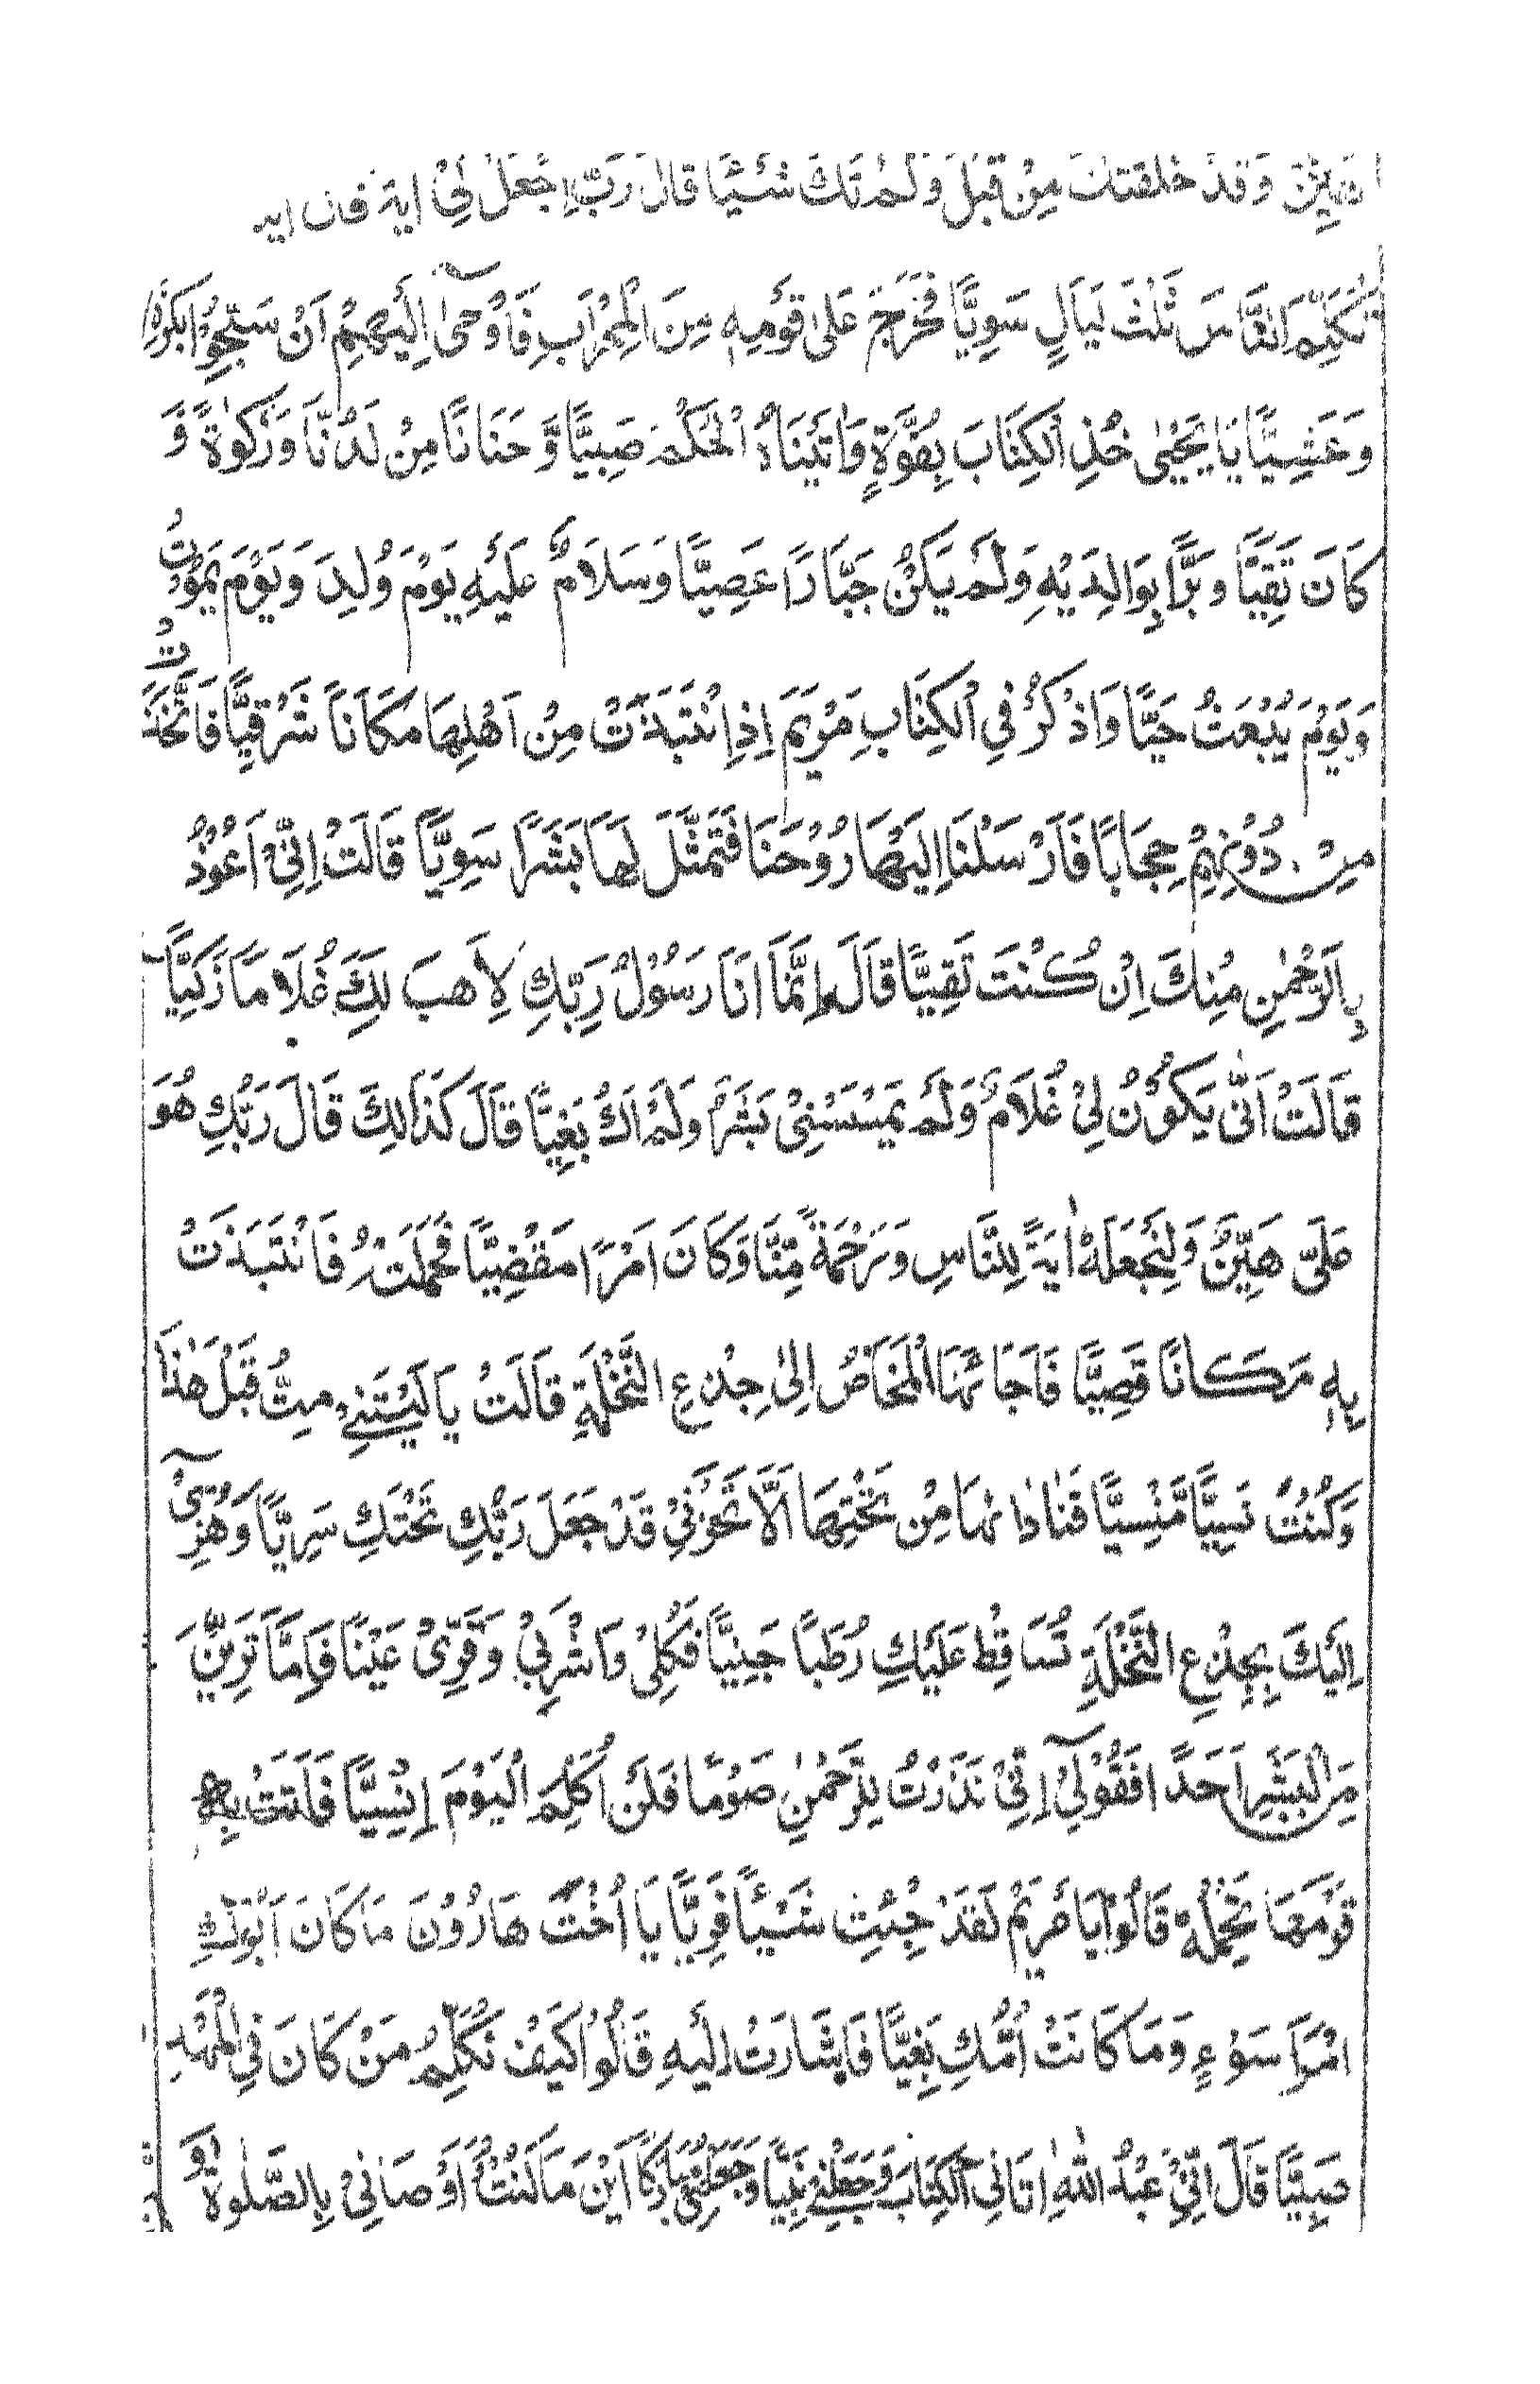 هَيِّنٌ وَقَدْ خَلَقْتُكَ مِنْ قَبْلُ وَلَمْ تَكُ شَيْئًا قَالَ رَبِّ اجْعَلْ لِيْ اٰيَةً قَالَ اٰيَتُ
تُكَلِّمَ النَّاسَ ثَلٰثَ لَيَالٍ سَوِيًّا فَخَرَجَ عَلٰى قَوْمِهٖ مِنَ الْمِحْرَابِ فَاَوْحٰٓى اِلَيْهِمْ اَنْ سَبِّحُوْا بُكْرَةً
وَعَشِيًّا يَا يَحْيٰى خُذِ الْكِتَابَ بِقُوَّةٍ وَاٰتَيْنَاهُ الْحُكْمَ صَبِيًّا وَّ حَنَانًا مِنْ لَدُنَّا وَزَكٰوةً وَّ
كَانَ تَقِيًّا وَ بَرًّا بِوَالِدَيْهِ وَلَمْ يَكُنْ جَبَّارًا عَصِيًّا وَسَلَامٌ عَلَيْهِ يَوْمَ وُلِدَ وَيَوْمَ يَمُوْتُ
وَيَوْمَ يُبْعَثُ حَيًّا وَاذْكُرْ فِي الْكِتَابِ مَرْيَمَ اِذِ انْتَبَذَتْ مِنْ اَهْلِهَا مَكَانًا شَرْقِيًّا فَاتَّخَذَتْ
مِنْ دُوْنِهِمْ حِجَابًا فَاَرْسَلْنَا اِلَيْهَا رُوْحَنَا فَتَمَثَّلَ لَهَا بَشَرًا سَوِيًّا قَالَتْ اِنِّيْ اَعُوْذُ
بِالرَّحْمٰنِ مِنْكَ اِنْ كُنْتَ تَقِيًّا قَالَ اِنَّمَا اَنَا رَسُوْلُ رَبِّكِ لِاَهَبَ لَكِ غُلَامًا زَكِيًّا
قَالَتْ اَنّٰى يَكُوْنُ لِيْ غُلَامٌ وَلَمْ يَمْسَسْنِيْ بَشَرٌ وَلَمْ اَكُ بَغِيًّا قَالَ كَذَالِكِ قَالَ رَبُّكِ هُوَ
عَلَيَّ هَيِّنٌ وَلِنَجْعَلَهٗ اٰيَةً لِلنَّاسِ وَرَحْمَةً مِّنَّا وَكَانَ اَمْرًا مَقْضِيًّا فَحَمَلَتْهُ فَانْتَبَذَتْ
بِهٖ مَكَانًا قَصِيًّا فَاَجَائَهَا الْمَخَاضُ اِلٰى جِذْعِ النَّخْلَةِ قَالَتْ يَا لَيْتَنِيْ مِتُّ قَبْلَ هٰذَا
وَكُنْتُ نَسِيًّا مَّنْسِيًّا فَنَادٰىهَا مِنْ تَحْتِهَا اَلَّا تَحْزَنِيْ قَدْ جَعَلَ رَبُّكِ تَحْتَكِ سَرِيًّا وَهُزِّيْٓ
اِلَيْكَ بِجِذْعِ النَّخْلَةِ تُسَاقِطْ عَلَيْكِ رُطَبًا جَنِيًّا فَكُلِيْ وَاشْرَبِيْ وَقَرِّيْ عَيْنًا فَاِمَّا تَرَيِنَّ
مِنَ الْبَشَرِ اَحَدًا فَقُوْلِيْٓ اِنِّيْ نَذَرْتُ لِلرَّحْمٰنِ صَوْمًا فَلَنْ اُكَلِّمَ الْيَوْمَ اِنْسِيًّا فَاَتَتْ بِهٖ
قَوْمَهَا تَحْمِلُهٗ قَالُوْا يَا مَرْيَمُ لَقَدْ جِئْتِ شَيْئًا فَرِيًّا يَا اُخْتَ هَارُوْنَ مَا كَانَ اَبُوْكِ
امْرَاَ سَوْءٍ وَمَا كَانَتْ اُمُّكِ بَغِيًّا فَاَشَارَتْ اِلَيْهِ قَالُوْا كَيْفَ نُكَلِّمُ مَنْ كَانَ فِي الْمَهْدِ
صَبِيًّا قَالَ اِنِّيْ عَبْدُ اللهِ اٰتَانِيَ الْكِتَابَ وَجَعَلَنِيْ نَبِيًّا وَجَعَلَنِيْ مُبَارَكًا اَيْنَ مَا كُنْتُ وَاَوْصَانِيْ بِالصَّلٰوةِ